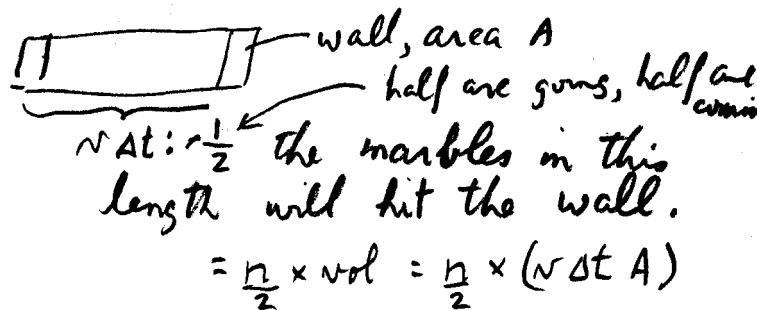 wall, area A
half are going, half are
coming
v Δt : ~ 1/2 the marbles in this
length will hit the wall.
= n/2 × vol = n/2 × (v Δt A)